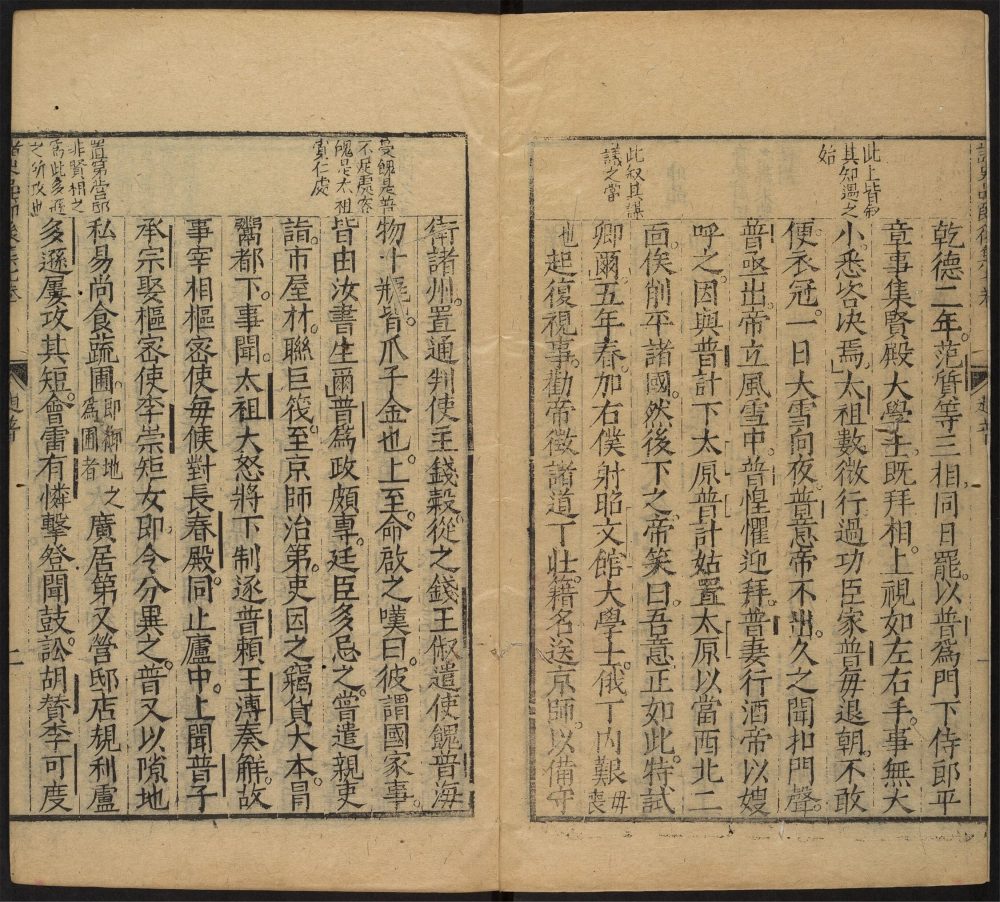 此上皆叙
其知遇之
始
此叙其謀
議之當
乾德二年。范質等三相同日罷。以普爲門下侍郎平
章事集賢殿大學士。既拜相。上視如左右手。事無大
小。悉咨决焉。太祖數微行過功臣家。普毎退朝。不敢
便衣冠。一日大雪向夜。普意帝不出。久之聞扣門聲。
普亟出。帝立風雪中。普惶懼迎拜。普妻行酒。帝以嫂
呼之。因與普計下太原。普計姑置太原以當西北二
面。俟削平諸國。然後下之。帝笑曰。吾意正如此。特試
卿爾。五年春。加右僕射昭文館大學士。俄丁内艱母喪
也起復視事。勸帝徴諸道丁壯。籍名送京師。以備守
曼餽是普
不是處容
餽是太祖
寛仁處
置第營邸
非賢相之
爲此多遜
之所攻也
衛諸州。置通判使主錢穀。從之。錢王俶遣使餽普海
物十瓶。皆爪子金也。上至。命啟之。嘆曰。彼謂國家事
皆由汝書生爾。普爲政頗專。廷臣多忌之。嘗遣親吏
詣市屋材。聯巨筏至京師治第。吏因之竊貨大木。冐
鬻都下。事聞。太祖大怒。將下制逐普。頼王溥奏解。故
事宰相樞密使毎候對長春殿。同止廬中。上聞普子
承宗娶樞密使李崇矩女。即令分異之。普又以隙地
私易尚食蔬圃。即御地爲圃者之廣居第。又營邸店規利。盧
多遜屢攻其短。會雷有憐擊登聞鼓。訟胡賛李可度
二